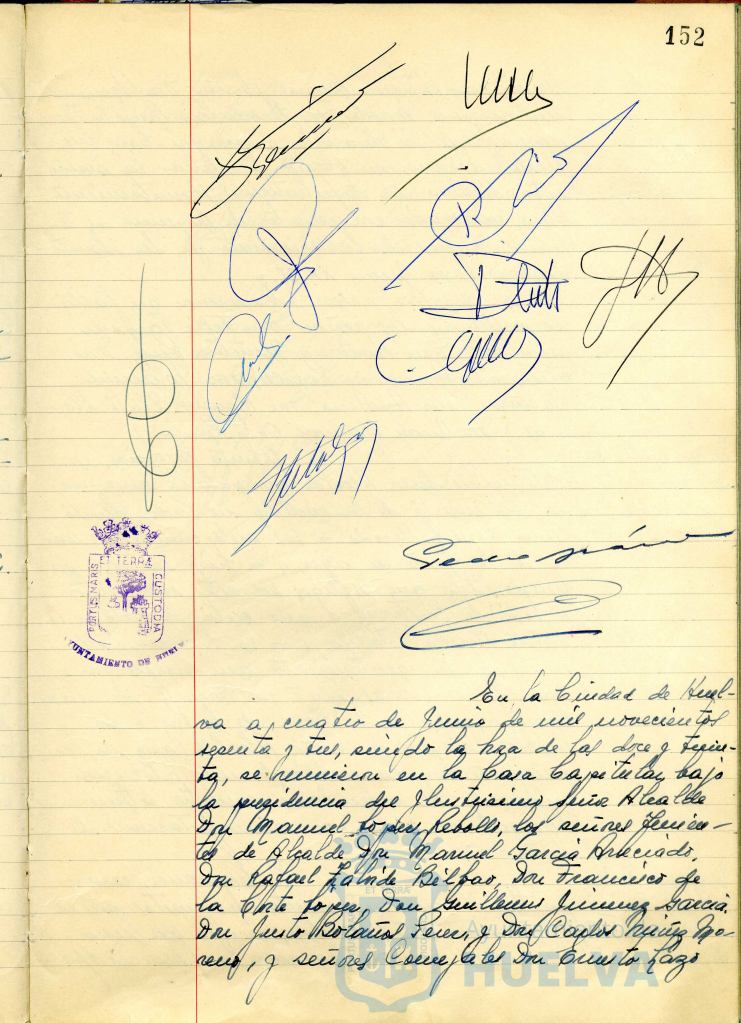 152
PORTUS MARIS
ET TERRA
CUSTODIA
AYUNTAMIENTO DE HUELVA
En la Ciudad de Huel-
va a cuatro de Junio de mil novecientos
sesenta y tres, siendo la hora de las doce y trein-
ta, se reunieron en la Casa Capitular, bajo
la presidencia del Ilustrisimo Señor Alcalde
Don Manuel Lopez Rebollo, los señores Tenien-
tes de Alcalde Don Manuel Garcia
Don Rafael Bilbao, Don Francisco de
la Corte Lopez, Don Guillermo Jimenez Garcia,
Don Justo Bolaños Perez, y Don Carlos Muñiz Mo-
reno, y señores Concejales Don Ernesto Lazo
HUELVA